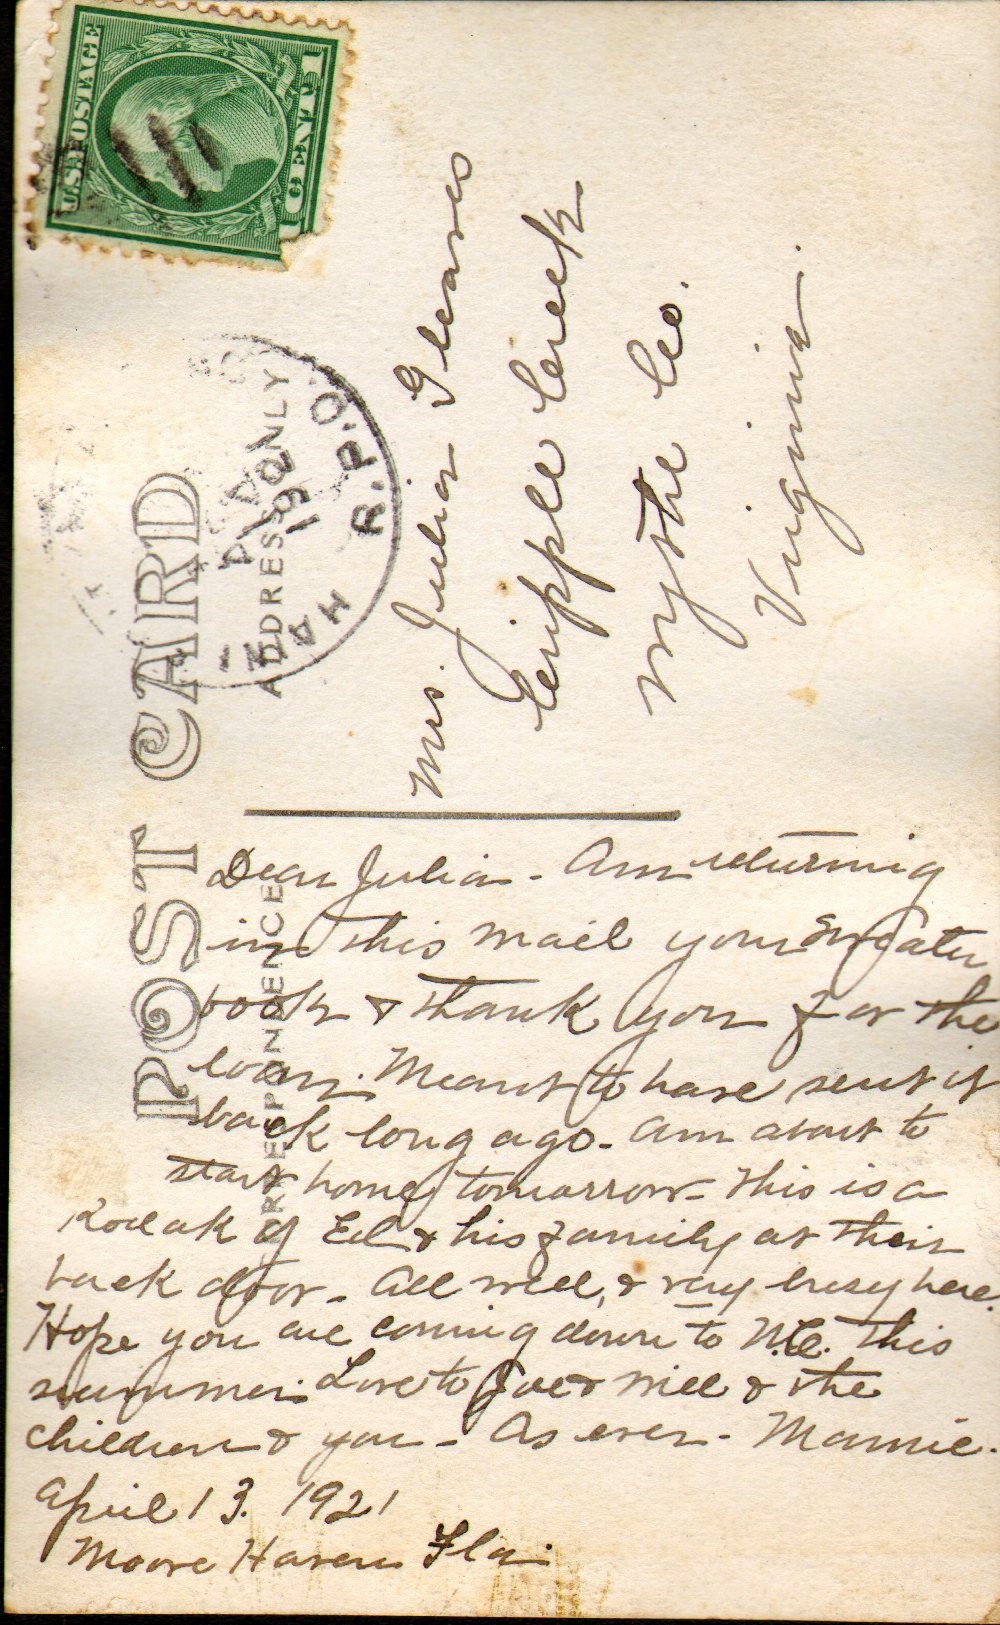 U.S. POSTAGE
1 CENT
POST CARD
CORRESPONDENCE
ADDRESS ONLY
R.P.O.
Mrs. Julia Gleaves
Cripple Creek
Wythe Co.
Virginia.
Dear Julia - Am returning
in this mail your Sweater
book & thank you for the
loan. Meant to have sent it
back long ago - Am about to
start home tomorrow - This is a
Kodak of Ed & his family at their
back door - All well, & very busy here.
Hope you are coming down to N.C. this
summer. Love to Joe & Will & the
children & you - As ever - Mamie.
April 13. 1921
Moore Haven Fla.